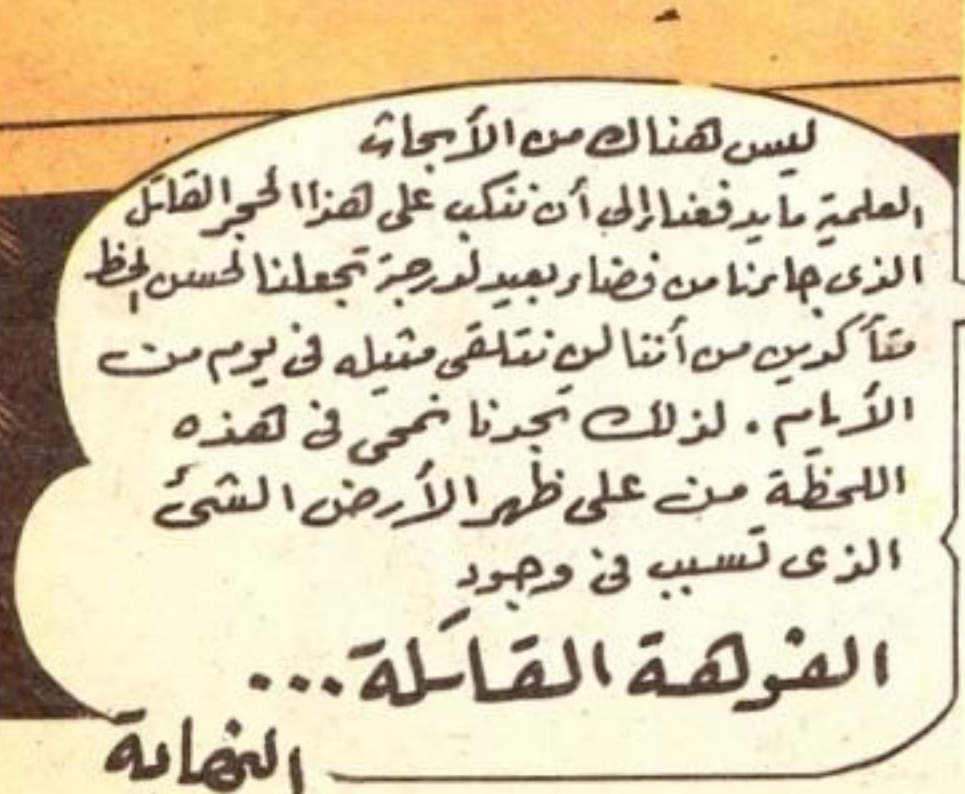 ليس هناك من الأبحاث
العلمية ما يدفعنا إلى أن ننكب على هذا الحجر القاتل
الذى جاءنا من فضاء بعيد لدرجة تجعلنا لحسن الحظ
متأكدين من أننا لن نتلقى مثيله فى يوم من
الأيام . لذلك تجدنا نمحى فى هذه
اللحظة من على ظهر الأرض الشئ
الذى تسبب فى وجود
الفوهة القاتلة ...
النهاية